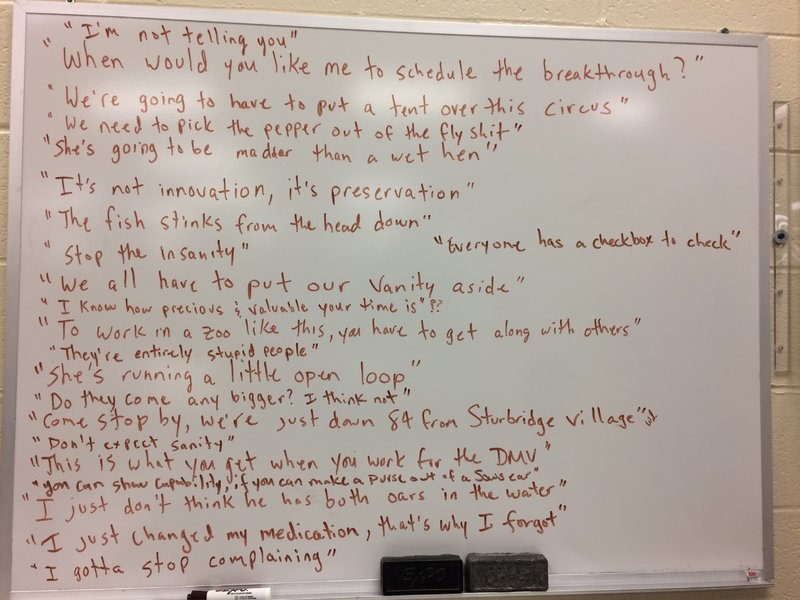 "I'm not telling you"
"When would you like me to schedule the breakthrough?"
"We're going to have to put a tent over this circus"
"We need to pick the pepper out of the fly shit"
"She's going to be madder than a wet hen"
"It's not innovation, it's preservation"
"The fish stinks from the head down"
"Stop the insanity"
"Everyone has a checkbox to check"
"We all have to put our vanity aside"
"I know how precious & valuable your time is"??
"To work in a zoo like this, you have to get along with others"
"They're entirely stupid people"
"She's running a little open loop"
"Do they come any bigger? I think not"
"Come stop by, we're just down 84 from Sturbridge Village"
"Don't expect sanity"
"This is what you get when you work for the DMV"
"you can show capability, if you can make a purse out of a sows ear"
"I just don't think he has both oars in the water"
"I just changed my medication, that's why I forgot"
"I gotta stop complaining"
EXPO